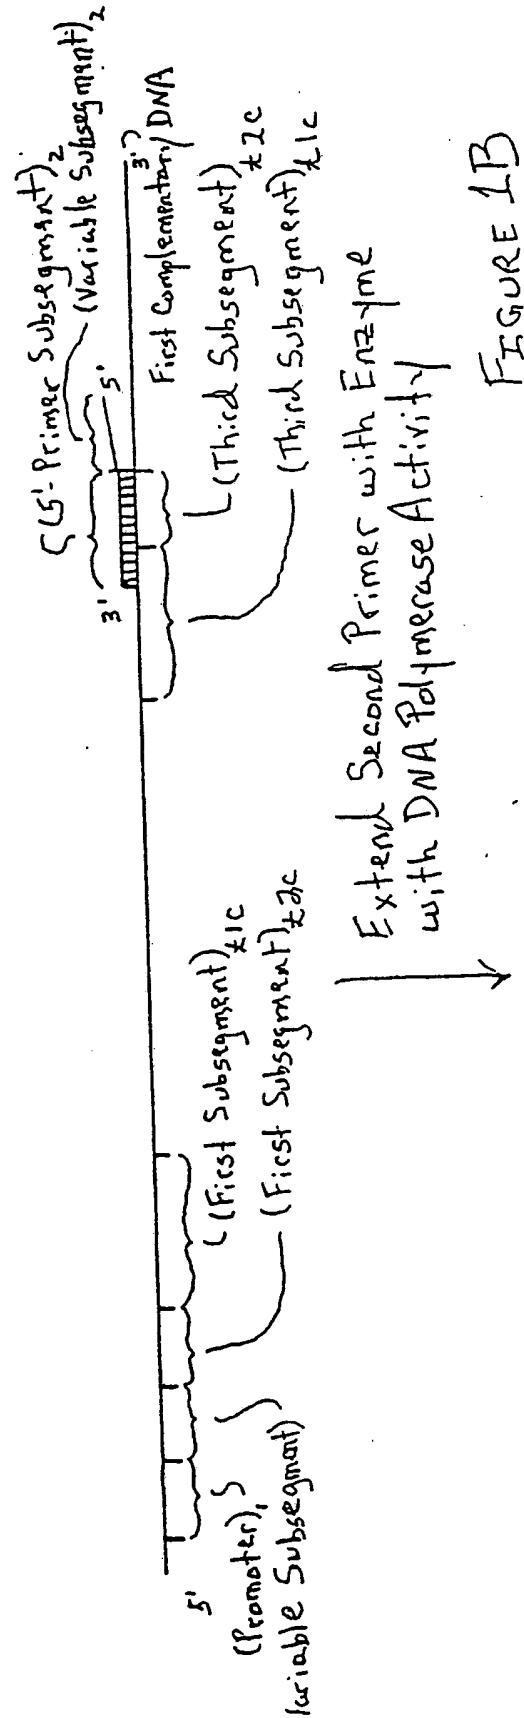 (5'-Primer Subsegment)2
(Variable Subsegment)2
3'
5'
3'
First Complementary DNA
(Third Subsegment)±2c
(Third Subsegment)±1c
(First Subsegment)±1c
(First Subsegment)±2c
5'
(Promoter)1
Variable Subsegment)
Extend Second Primer with Enzyme
with DNA Polymerase Activity
FIGURE 1B